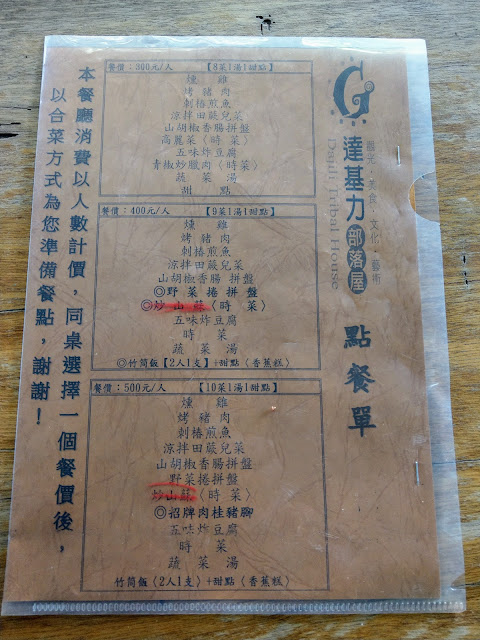 G
觀光‧美食‧文化‧藝術
達基力部落屋 點餐單
Tribal House
餐價：300元/人 【8菜1湯1甜點】
燻雞
烤豬肉
刺椿煎魚
涼拌田蕨兒菜
山胡椒香腸拼盤
高麗菜〈時菜〉
五味炸豆腐
青椒炒臘肉〈時菜〉
蔬菜湯
甜點
餐價：400元/人 【9菜1湯1甜點】
燻雞
烤豬肉
刺椿煎魚
涼拌田蕨兒菜
山胡椒香腸 拼盤
◎野菜捲拼盤
◎炒山蘇〈時菜〉
五味炸豆腐
時菜
蔬菜湯
◎竹筒飯【2人1支】+甜點〈香蕉糕〉
餐價：500元/人 【10菜1湯1甜點】
燻雞
烤豬肉
刺椿煎魚
涼拌田蕨兒菜
山胡椒香腸拼盤
野菜捲拼盤
炒山蘇〈時菜〉
◎招牌肉桂豬腳
五味炸豆腐
時菜
蔬菜湯
竹筒飯〈2人1支〉+甜點〈香蕉糕〉
本餐廳消費以人數計價，同桌選擇一個餐價後，
以合菜方式為您準備餐點，謝謝！